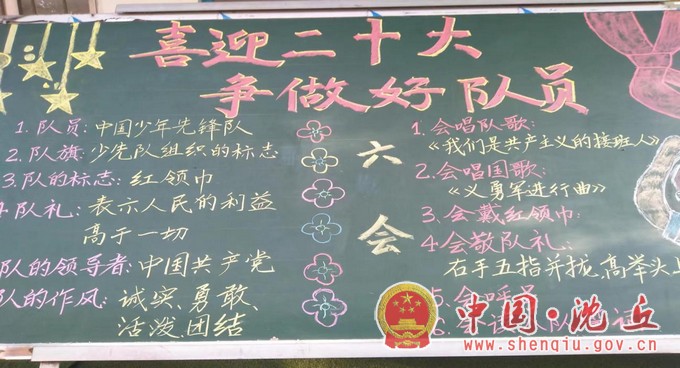 喜迎二十大
争做好队员
1.队员:中国少年先锋队
2.队旗:少先队组织的标志
3.队的标志:红领巾
队礼:表示人民的利益
高于一切
队的领导者:中国共产党
队的作风:诚实、勇敢、
活泼、团结
六会
1.会唱队歌:
《我们是共产主义的接班人》
2.会唱国歌:
《义勇军进行曲》
3.会戴红领巾:
4.会敬队礼:
右手五指并拢,高举头上
5.会呼号
中国·沈丘
www.shenqiu.gov.cn